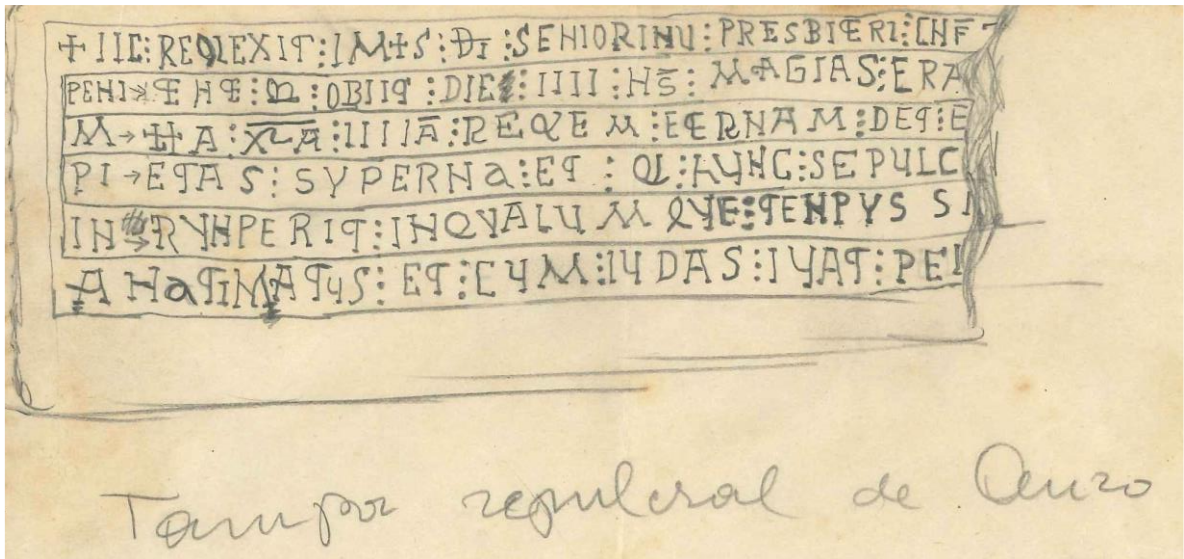 + IIC:REQIEXIT:IM+S:DI:SENIORINU:PRESBITERI:CNF
PENITENTE:M:OBIIT:DIE:IIII:NS:MAGIAS:ERA
M:A:XLA:IIIIA:REQEM:ETERNAM:DET:E
PIETAS:SYPERNa:ET:QI:hYNC:SEPULC
IN RYNPERIT:INQYALUMQYE:TENPYS SI
ANaTIMATYS:ET:CYM:IYDAS:IYAT:PEI
Tampa sepulcral de Ouro